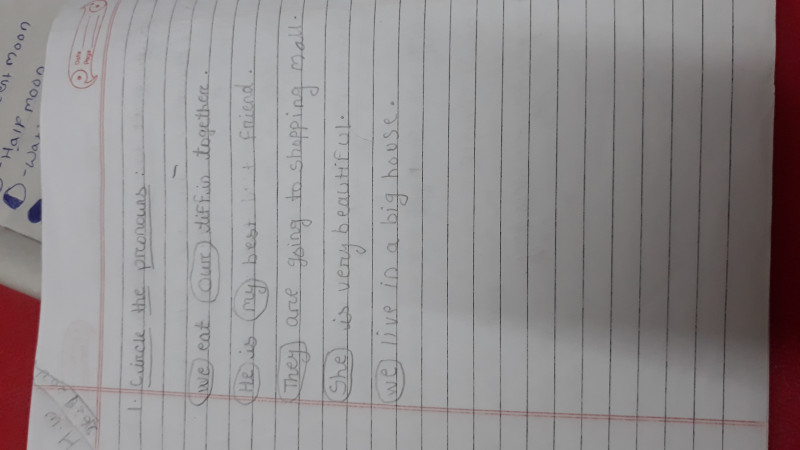 H.W
1. Circle the pronouns:
we eat our tiffin together.
He is my best friend.
They are going to shopping mall.
She is very beautiful.
we live in a big house.
Date
Page
moon
- Half moon